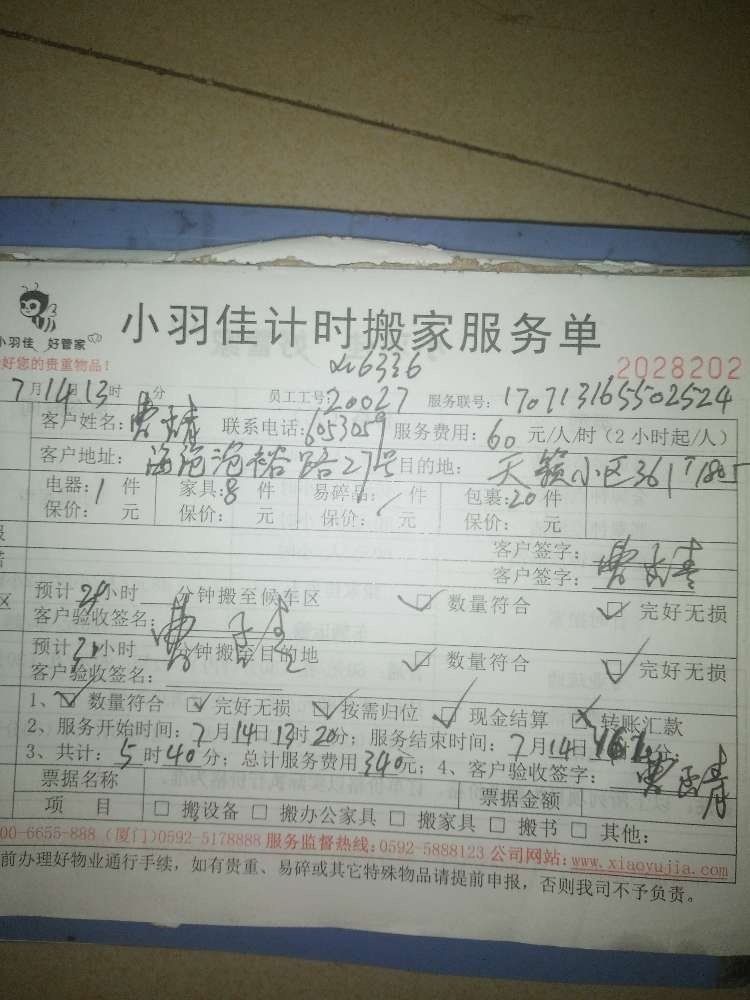 小羽佳计时搬家服务单
小羽佳 好管家
好您的贵重物品！
6336
2028202
7月14日13时 分 员工工号：20027 服务联号：170713165502524
客户姓名：曹 联系电话：6053059 服务费用：60 元/人/时（2小时起/人）
客户地址：海沧沧 路27号 目的地：天籁小区
电器：1 件 家具：8 件 易碎品： 件 包裹：20 件
保价： 元 保价： 元 保价： 元 保价： 元
客户签字：
客户签字：曹
预计 小时 分钟搬至候车区 ☑ 数量符合 ☑ 完好无损
客户验收签名：曹
预计 小时 分钟搬至目的地 ☑ 数量符合 ☑ 完好无损
客户验收签名：
1、☑ 数量符合 ☑ 完好无损 ☑ 按需归位 ☑ 现金结算 ☒ 转账汇款
2、服务开始时间：7月14日13时20分；服务结束时间：7月14日 分；
3、共计：5时40分；总计服务费用340元；4、客户验收签字：曹
票据名称 票据金额
项 目 □ 搬设备 □ 搬办公家具 □ 搬家具 □ 搬书 □ 其他：
00-6655-888 (厦门)0592-5178888 服务监督热线：0592-5888123 公司网站：www.xiaoyujia.com
前办理好物业通行手续，如有贵重、易碎或其它特殊物品请提前申报，否则我司不予负责。